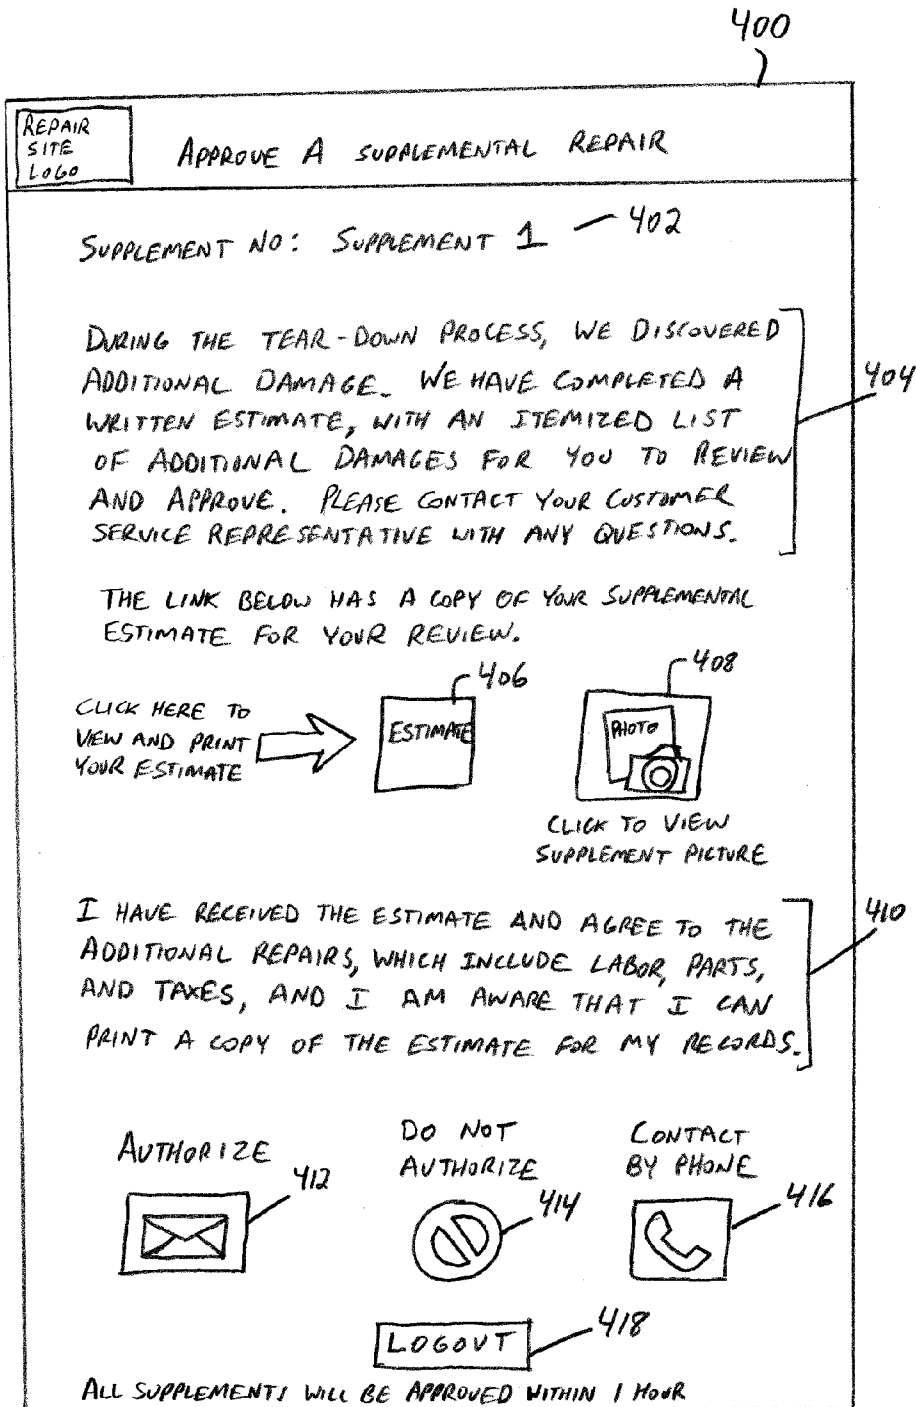 400
REPAIR
SITE
LOGO
APPROVE A SUPPLEMENTAL REPAIR
SUPPLEMENT NO: SUPPLEMENT 1
402
DURING THE TEAR-DOWN PROCESS, WE DISCOVERED
ADDITIONAL DAMAGE. WE HAVE COMPLETED A
WRITTEN ESTIMATE, WITH AN ITEMIZED LIST
OF ADDITIONAL DAMAGES FOR YOU TO REVIEW
AND APPROVE. PLEASE CONTACT YOUR CUSTOMER
SERVICE REPRESENTATIVE WITH ANY QUESTIONS.
404
THE LINK BELOW HAS A COPY OF YOUR SUPPLEMENTAL
ESTIMATE FOR YOUR REVIEW.
CLICK HERE TO
VIEW AND PRINT
YOUR ESTIMATE
406
ESTIMATE
408
PHOTO
CLICK TO VIEW
SUPPLEMENT PICTURE
I HAVE RECEIVED THE ESTIMATE AND AGREE TO THE
ADDITIONAL REPAIRS, WHICH INCLUDE LABOR, PARTS,
AND TAXES, AND I AM AWARE THAT I CAN
PRINT A COPY OF THE ESTIMATE FOR MY RECORDS.
410
AUTHORIZE
412
DO NOT
AUTHORIZE
414
CONTACT
BY PHONE
416
LOGOUT
418
ALL SUPPLEMENTS WILL BE APPROVED WITHIN 1 HOUR